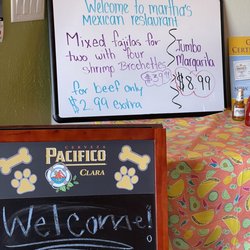 Welcome to martha's
Mexican restaurant
Mixed fajitas for
two with four
shrimp Brochettes
for beef only
$2.99 extra
Jumbo
Margarita
$8.99
CERVEZA
PACIFICO
CLARA
Welcome!